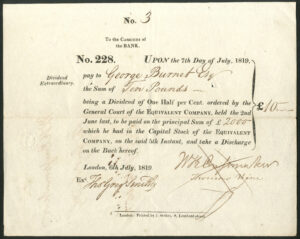 No. 3
To the CASHIER of
the BANK.
No. 228. UPON the 7th Day of July, 1819,
Dividend
Extraordinary.
pay to George Burnet Esq
the Sum of Ten Pounds —
being a Dividend of One Half per Cent. ordered by the
General Court of the EQUIVALENT COMPANY, held the 2nd
June last, to be paid on the principal Sum of £ 2000
which he had in the Capital Stock of the EQUIVALENT
COMPANY, on the said 5th Instant, and take a Discharge
on the Back hereof.
£ 10 —
London, 6th July, 1819.
Ex.
Thomas
London: Printed by